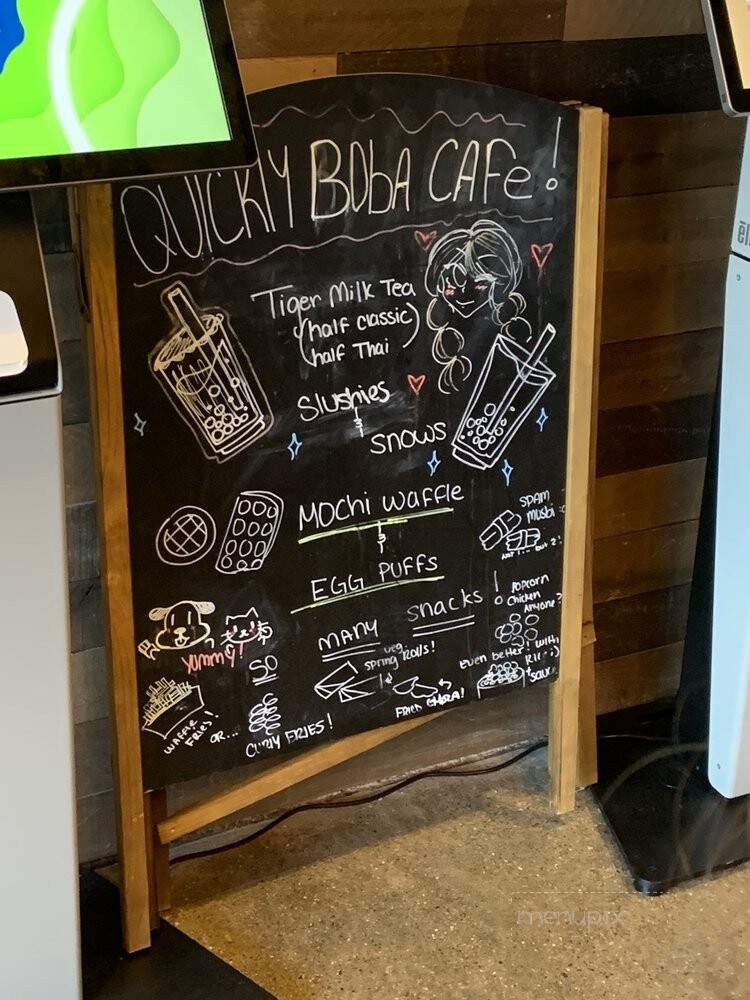 QUICKLY BObA CAFe!
Tiger Milk Tea
(half classic)
(half Thai
Slushies
&
SNOWS
MOCHI WAFFLE
&
EGG PUFFS
SPAM
MUSBI
NOT 1... but 2!
! POPCORN
Chicken
Anyone?
SO MANY SNACKS
Yummy!
veg
spring Rolls!
even better! with
RICE :)
+ sauce
WAFFLE
FRIES!
OR...
CURLY FRIES!
FRIED GYOZA!
menupix